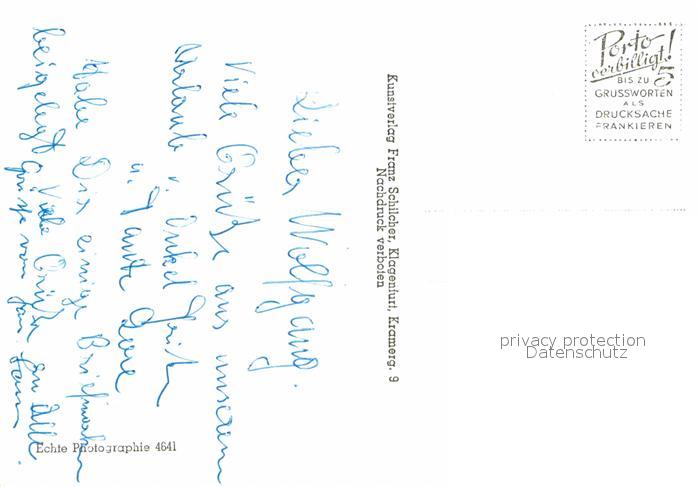 Lieber Wolfgang.
Viele Grüße aus unserem
Urlaub v. Onkel Fritz
u. Tante Lore
Habe Dir einige Briefmarken
beigelegt Viele Grüße an Alle.
Grüße von
Kunstverlag Franz Schilcher, Klagenfurt, Kramerg. 9
Nachdruck verboten
Echte Photographie 4641
Porto
verbilligt!
BIS ZU 5
GRUSSWORTEN
ALS
DRUCKSACHE
FRANKIEREN
privacy protection
Datenschutz